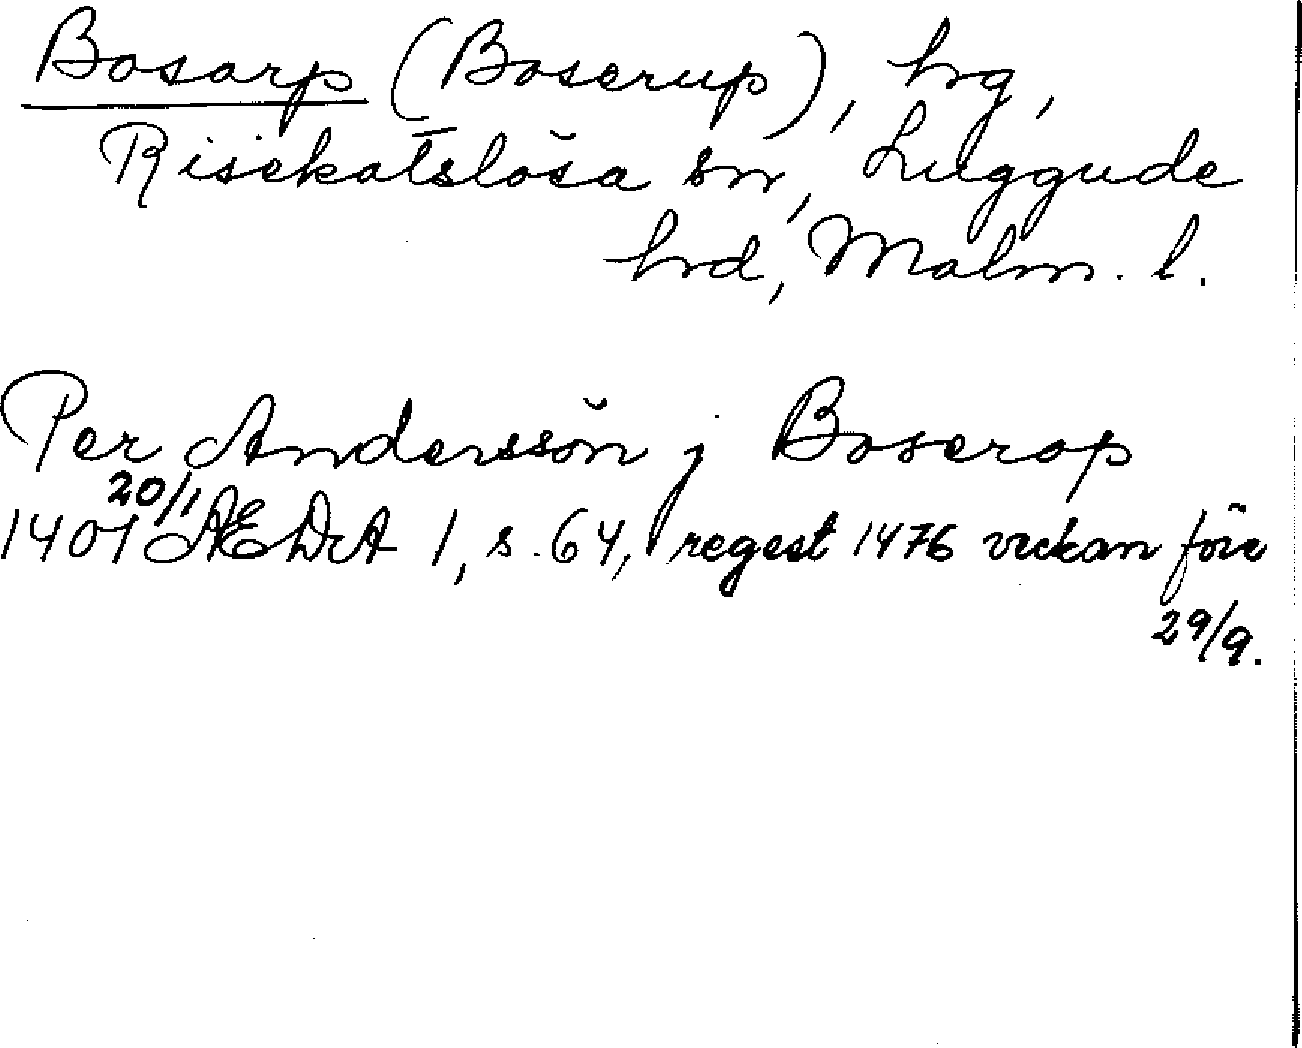 Bosarp (Boserup), hg,
Risekatslösa sn, Luggude
hrd, Malm. l.
Per Anderssön j Boserop
20/1
1401 ÆDA 1, s. 64, regest 1476 veckan före
29/9.